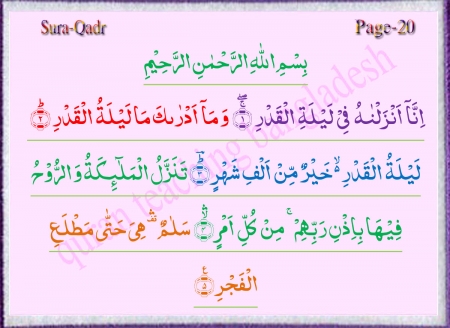 Sura-Qadr Page-20
بِسْمِ اللهِ الرَّحْمٰنِ الرَّحِيْمِ
اِنَّاۤ اَنْزَلْنٰهُ فِيْ لَيْلَةِ الْقَدْرِ ۝١ وَمَاۤ اَدْرٰىكَ مَا لَيْلَةُ الْقَدْرِ ۝٢
لَيْلَةُ الْقَدْرِ ۙ خَيْرٌ مِّنْ اَلْفِ شَهْرٍ ۝٣ تَنَزَّلُ الْمَلٰٓئِكَةُ وَالرُّوْحُ
فِيْهَا بِاِذْنِ رَبِّهِمْ ۚ مِنْ كُلِّ اَمْرٍ ۝٤ سَلٰمٌ ۛ هِىَ حَتّٰى مَطْلَعِ
الْفَجْرِ ۝٥
quran teaching bangladesh